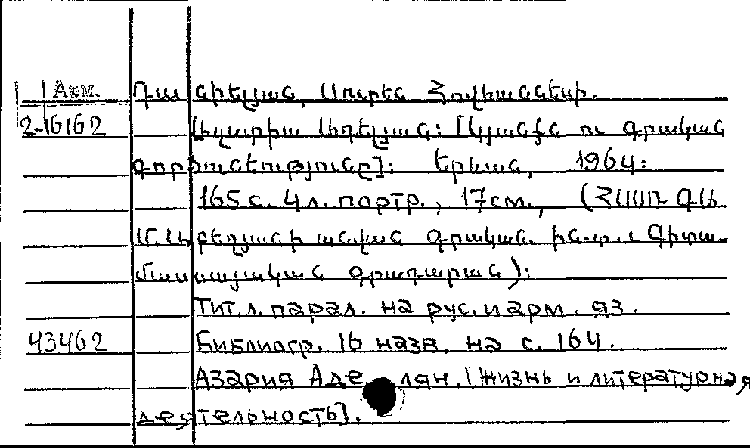 Арм. Դանիելյան, Սուրեն Հովհաննեսի.
2-16162 Ազարիա Ադելյան: [Կյանքն ու գրական
գործունեությունը]: Երևան, 1964:
165 с. 4 л. портр., 17 см., (ՀՍՍՌ ԳԱ
Մ. Աբեղյանի անվան գրական. ին-տ. Գիտա-
մասսայական գրադարան):
Тит. л. парал. на рус. и арм. яз.
43462 Библиогр. 16 назв. на с. 164.
Азария Аде лян. [Жизнь и литературная
деятельность].